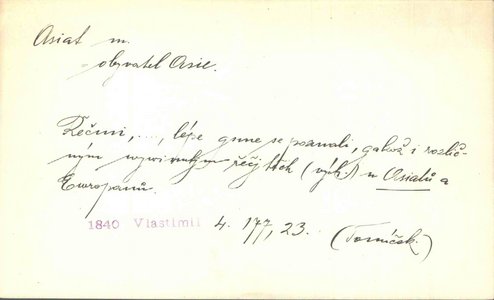 Asiat m.
obyvatel Asie.
Řečmi, ...., lépe gsme se poznali, gakož i rozlič-
ným wywinutjm řečj těch (vých.) u Asiatů a
Europanů.
1840 Vlastimil 4. 177, 23.
(Tomíček.)